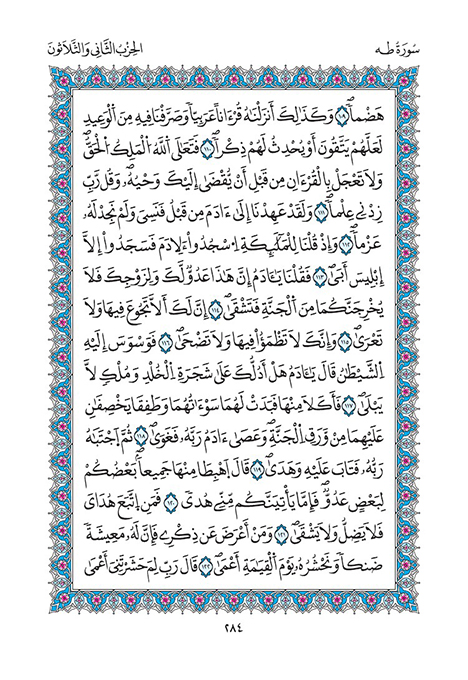 سُورَةُ طَـه
الحِزْبُ الثَّانِي وَالثَّلَاثُونَ
هَضْماًۖ ١٠٩ وَكَذَٰلِكَ أَنزَلْنَٰهُ قُرْءَاناً عَرَبِيّاً وَصَرَّفْنَا فِيهِ مِنَ اَ۬لْوَعِيدِ
لَعَلَّهُمْ يَتَّقُونَ أَوْ يُحْدِثُ لَهُمْ ذِكْراًۖ ١١٠ فَتَعَٰلَى اَ۬للَّهُ اُ۬لْمَلِكُ اُ۬لْحَقُّۖ
وَلَا تَعْجَلْ بِالْقُرْءَانِ مِن قَبْلِ أَنْ يُّقْضَىٰٓ إِلَيْكَ وَحْيُهُۥۖ وَقُل رَّبِّ
زِدْنِے عِلْماًۖ ١١١ وَلَقَدْ عَهِدْنَآ إِلَىٰٓ ءَادَمَ مِن قَبْلُ فَنَسِيَ وَلَمْ نَجِدْ لَهُۥ
عَزْماًۖ ١١٢ وَإِذْ قُلْنَا لِلْمَلَٰٓئِكَةِ اِ۟سْجُدُواْ لِأٓدَمَ فَسَجَدُوٓاْ إِلَّآ
إِبْلِيسَ أَبَىٰۖ ١١٣ فَقُلْنَا يَٰٓـَٔادَمُ إِنَّ هَٰذَا عَدُوّٞ لَّكَ وَلِزَوْجِكَ فَلَا
يُخْرِجَنَّكُمَا مِنَ اَ۬لْجَنَّةِ فَتَشْقَىٰٓۖ ١١٤ إِنَّ لَكَ أَلَّا تَجُوعَ فِيهَا وَلَا
تَعْرَىٰۖ ١١٥ وَإِنَّكَ لَا تَظْمَؤُاْ فِيهَا وَلَا تَضْحَىٰۖ ١١٦ فَوَسْوَسَ إِلَيْهِ
اِ۬لشَّيْطَٰنُ قَالَ يَٰٓـَٔادَمُ هَلْ أَدُلُّكَ عَلَىٰ شَجَرَةِ اِ۬لْخُلْدِ وَمُلْكٖ لَّا
يَبْلَىٰۖ ١١٧ فَأَكَلَا مِنْهَا فَبَدَتْ لَهُمَا سَوْءَٰتُهُمَا وَطَفِقَا يَخْصِفَٰنِ
عَلَيْهِمَا مِنْ وَّرَقِ اِ۬لْجَنَّةِۖ وَعَصَىٰٓ ءَادَمُ رَبَّهُۥ فَغَوَىٰۖ ١١٨ ثُمَّ اَ۪جْتَبَٰهُ
رَبُّهُۥ فَتَابَ عَلَيْهِ وَهَدَىٰۖ ١١٩ قَالَ اَ۪هْبِطَا مِنْهَا جَمِيعاَۢۖ بَعْضُكُمْ
لِبَعْضٍ عَدُوّٞۖ فَإِمَّا يَأْتِيَنَّكُم مِّنِّے هُدىٗ ١٢٠ فَمَنِ اِ۪تَّبَعَ هُدَايَ
فَلَا يَضِلُّ وَلَا يَشْقَىٰۖ ١٢١ وَمَنْ أَعْرَضَ عَن ذِكْرِے فَإِنَّ لَهُۥ مَعِيشَةٗ
ضَنكاٗ وَنَحْشُرُهُۥ يَوْمَ اَ۬لْقِيَٰمَةِ أَعْمَىٰۖ ١٢٢ قَالَ رَبِّ لِمَ حَشَرْتَنِيٓ أَعْمَىٰ
٢٨٤